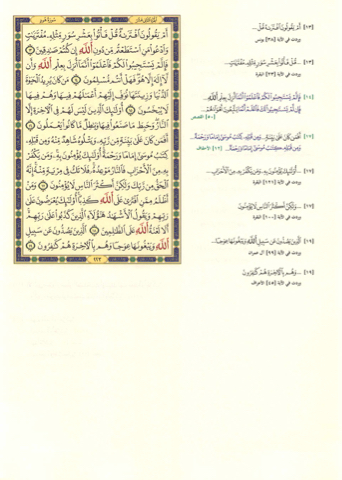 سورة هود
أَمْ يَقُولُونَ ٱفْتَرَىٰهُ قُلْ فَأْتُوا۟ بِعَشْرِ سُوَرٍ مِّثْلِهِۦ مُفْتَرَيَٰتٍ
وَٱدْعُوا۟ مَنِ ٱسْتَطَعْتُم مِّن دُونِ ٱللَّهِ إِن كُنتُمْ صَٰدِقِينَ ١٣
فَإِلَّمْ يَسْتَجِيبُوا۟ لَكُمْ فَٱعْلَمُوٓا۟ أَنَّمَآ أُنزِلَ بِعِلْمِ ٱللَّهِ وَأَن
لَّآ إِلَٰهَ إِلَّا هُوَ فَهَلْ أَنتُم مُّسْلِمُونَ ١٤ مَن كَانَ يُرِيدُ ٱلْحَيَوٰةَ
ٱلدُّنْيَا وَزِينَتَهَا نُوَفِّ إِلَيْهِمْ أَعْمَٰلَهُمْ فِيهَا وَهُمْ فِيهَا
لَا يُبْخَسُونَ ١٥ أُو۟لَٰٓئِكَ ٱلَّذِينَ لَيْسَ لَهُمْ فِى ٱلْءَاخِرَةِ إِلَّا
ٱلنَّارُ وَحَبِطَ مَا صَنَعُوا۟ فِيهَا وَبَٰطِلٌ مَّا كَانُوا۟ يَعْمَلُونَ ١٦
أَفَمَن كَانَ عَلَىٰ بَيِّنَةٍ مِّن رَّبِّهِۦ وَيَتْلُوهُ شَاهِدٌ مِّنْهُ وَمِن قَبْلِهِۦ
كِتَٰبُ مُوسَىٰٓ إِمَامًا وَرَحْمَةً أُو۟لَٰٓئِكَ يُؤْمِنُونَ بِهِۦ وَمَن يَكْفُرْ
بِهِۦ مِنَ ٱلْأَحْزَابِ فَٱلنَّارُ مَوْعِدُهُۥ فَلَا تَكُ فِى مِرْيَةٍ مِّنْهُ إِنَّهُ
ٱلْحَقُّ مِن رَّبِّكَ وَلَٰكِنَّ أَكْثَرَ ٱلنَّاسِ لَا يُؤْمِنُونَ ١٧ وَمَنْ
أَظْلَمُ مِمَّنِ ٱفْتَرَىٰ عَلَى ٱللَّهِ كَذِبًا أُو۟لَٰٓئِكَ يُعْرَضُونَ عَلَىٰ
رَبِّهِمْ وَيَقُولُ ٱلْأَشْهَٰدُ هَٰٓؤُلَآءِ ٱلَّذِينَ كَذَبُوا۟ عَلَىٰ رَبِّهِمْ
أَلَا لَعْنَةُ ٱللَّهِ عَلَى ٱلظَّٰلِمِينَ ١٨ ٱلَّذِينَ يَصُدُّونَ عَن سَبِيلِ
ٱللَّهِ وَيَبْغُونَهَا عِوَجًا وَهُم بِٱلْءَاخِرَةِ هُمْ كَٰفِرُونَ ١٩
٢٢٣
[١٣] أَمْ يَقُولُونَ ٱفْتَرَىٰهُ قُلْ...
وردت في الآية [٣٨] يونس
[١٣] ...قُلْ فَأْتُوا۟ بِعَشْرِ سُوَرٍ مِّثْلِهِۦ مُفْتَرَيَٰتٍ...
وردت في الآية [٢٣] البقرة
[١٤] فَإِلَّمْ يَسْتَجِيبُوا۟ لَكُمْ فَٱعْلَمُوٓا۟ أَنَّمَآ أُنزِلَ بِعِلْمِ ٱللَّهِ...
[٥٠] القصص
[١٧] أَفَمَن كَانَ عَلَىٰ بَيِّنَةٍ ... وَمِن قَبْلِهِۦ كِتَٰبُ مُوسَىٰٓ إِمَامًا وَرَحْمَةً...
وَمِن قَبْلِهِۦ كِتَٰبُ مُوسَىٰٓ إِمَامًا وَرَحْمَةً... [١٢] الأحقاف
[١٧] ...أُو۟لَٰٓئِكَ يُؤْمِنُونَ بِهِۦ وَمَن يَكْفُرْ بِهِۦ مِنَ ٱلْأَحْزَابِ...
وردت في الآية [١٢١] البقرة
[١٧] ...وَلَٰكِنَّ أَكْثَرَ ٱلنَّاسِ لَا يُؤْمِنُونَ
وردت في الآية
[١٩] ٱلَّذِينَ يَصُدُّونَ عَن سَبِيلِ ٱللَّهِ وَيَبْغُونَهَا عِوَجًا...
وردت في الآية [٩٩] آل عمران
[١٩] ...وَهُم بِٱلْءَاخِرَةِ هُمْ كَٰفِرُونَ
وردت في الآية [٤٥] الأعراف